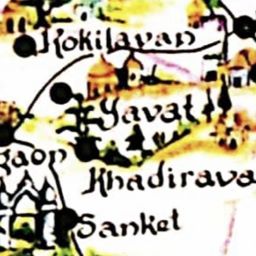 Kokilavan
Yavat
gaon
Khadirava
Sanket